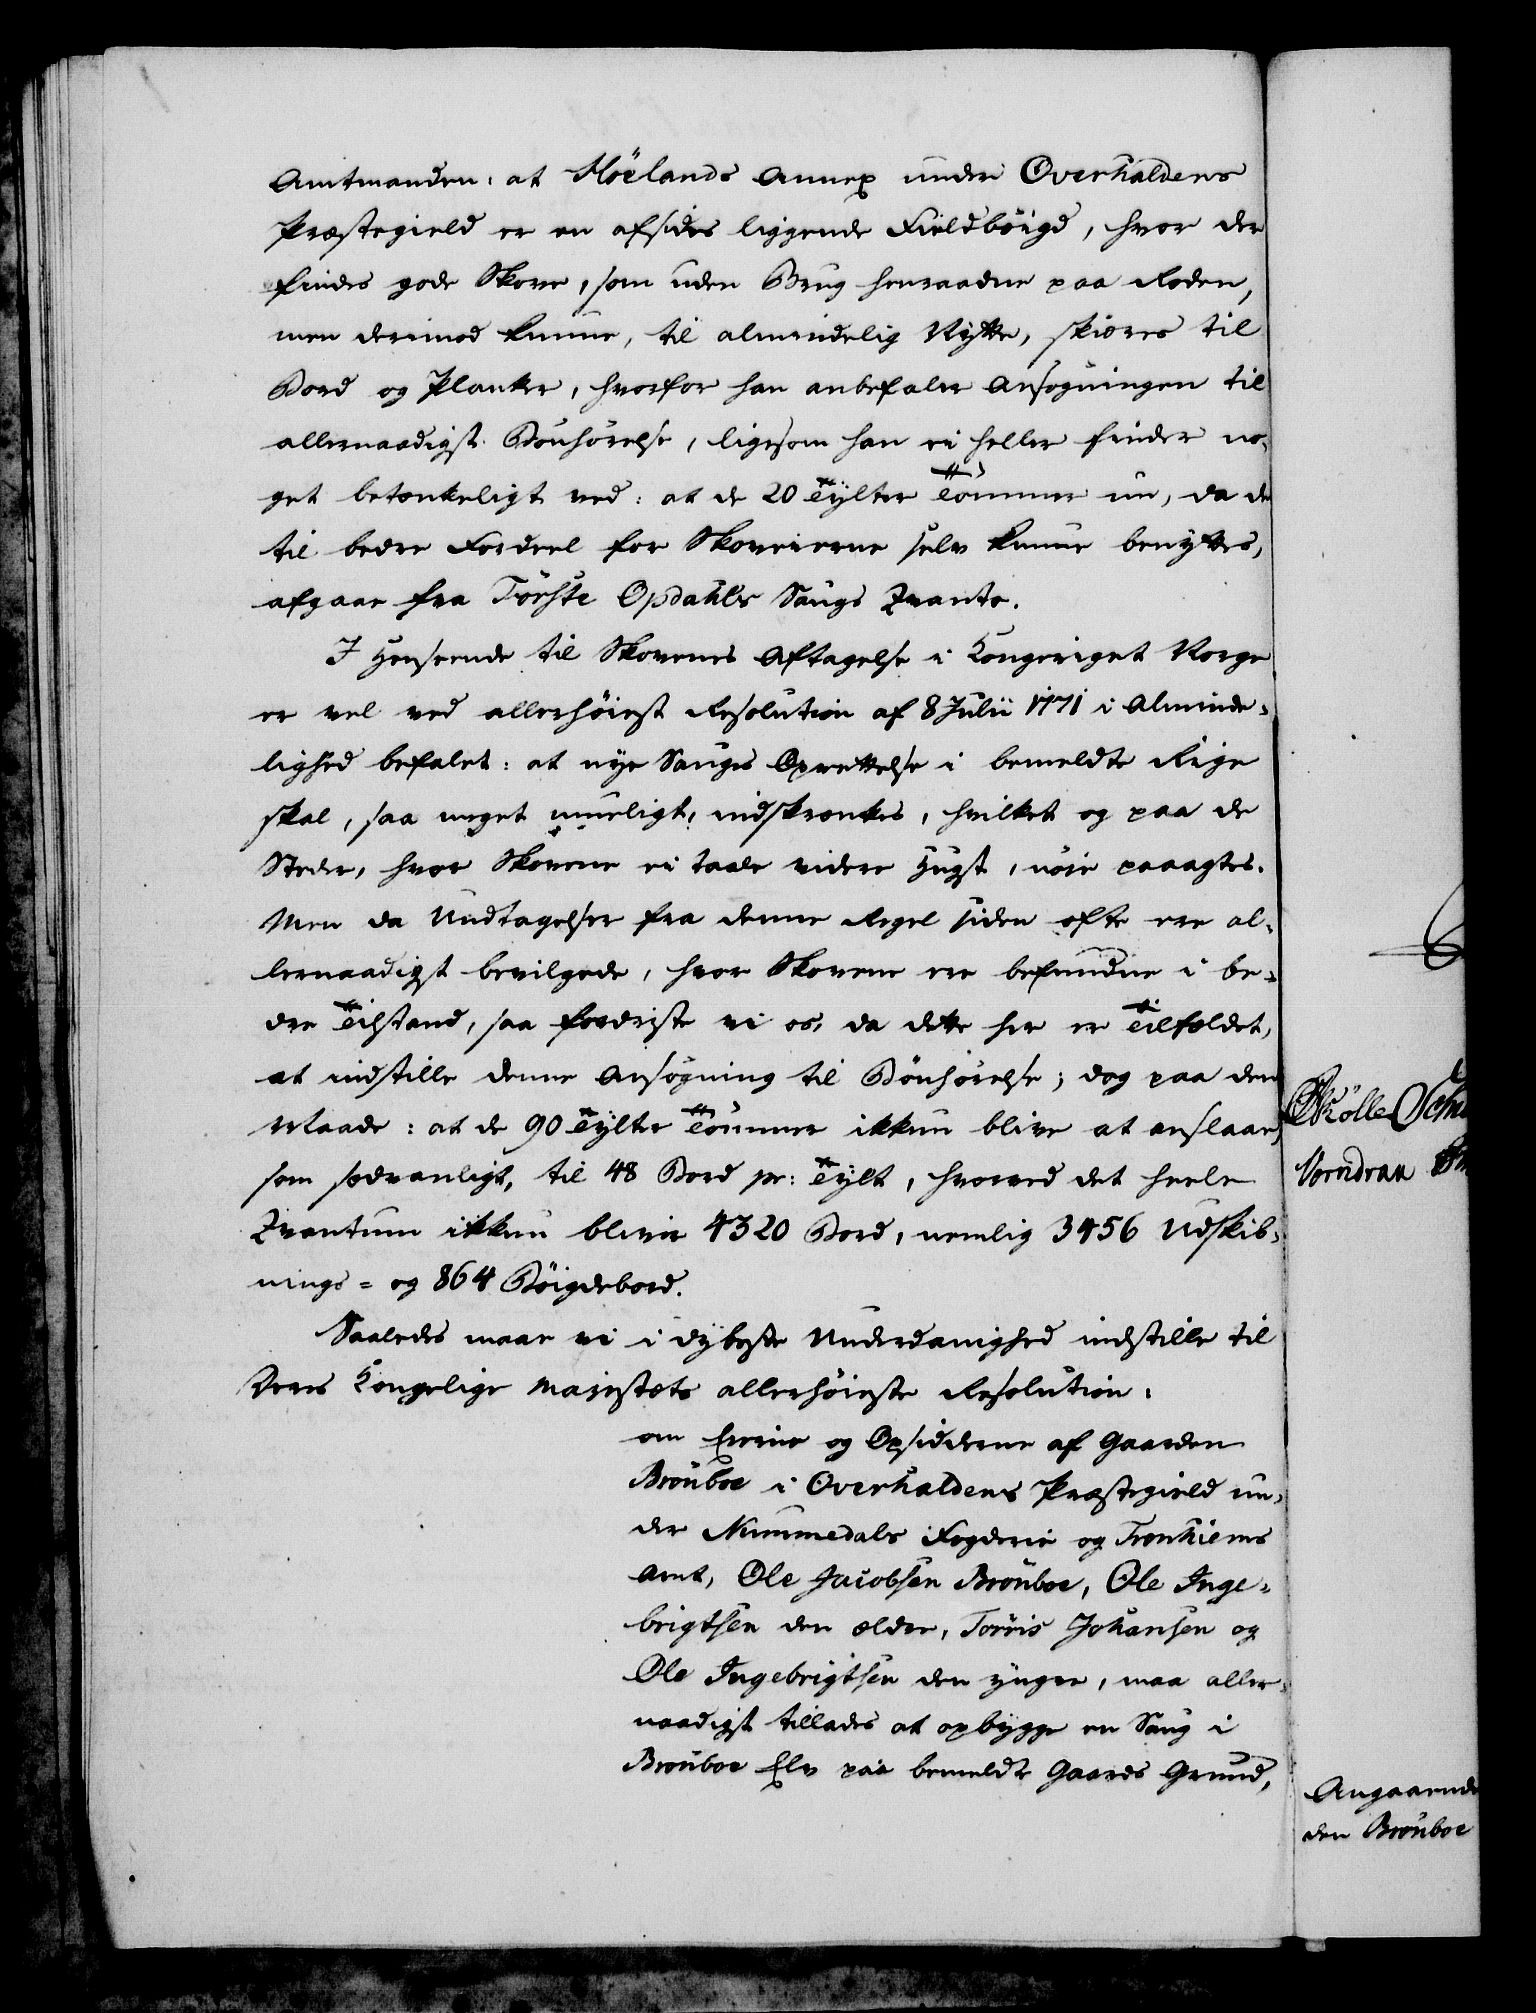 Amtmanden: at Höelands Annex under Overhaldens
Præstegield er en afsides liggende Fieldböigd, hvor der
findes gode Skove, som uden Brug henraadne paa Roden,
men derimod kunne, til almindelig Nytte, skiæres til
Bord og Planker, hvorfor han anbefaler Ansøgningen til
allernaadigst Bönhörelse, ligesom han ei heller finder no-
get betænkeligt ved: at de 20 Tylter Tömmer nu, da de
til bedre Fordeel for Skoveierne selv kunne benyttes,
afgaar fra Törste Opdahls Saugs Qvanto.
I Henseende til Skovenes Aftagelse i Kongeriget Norge
er vel ved allerhöiest Resolution af 8 Julii 1771 i Alminde-
lighed befalet: at nye Sauges Oprettelse i bemeldte Rige
skal, saa meget mueligt, indskrænkes, hvilket og paa de
Steder, hvor Skovene ei taale videre Hugst, nöie paaagtes.
Men da Undtagelser fra denne Regel siden ofte ere al-
lernaadigst bevilgede, hvor Skovene ere befundne i be-
dre Tilstand, saa fordriste vi os, da dette her er Tilfældet,
at indstille denne Ansögning til Bönhörelse; dog paa den
Maade: at de 90 Tylter Tömmer ikkun blive at anslaae,
som sædvanligt, til 48 Bord pr: Tylt, hvorved det heele
Qvantum ikkun bliver 4320 Bord, nemlig 3456 Udskib-
nings- og 864 Böigdebord.
Saaledes maae vi i dybeste Underdanighed indstille til
Deres Kongelige Majestæts allerhöieste Resolution:
om Eierne og Opsidderne af Gaarden
Brönboe i Overhaldens Præstegield un-
der Nummedals Fogderie og Tronhiems
Amt, Ole Jacobsen Brönboe, Ole Inge-
brigtsen den ældre, Torris Johansen og
Ole Ingebrigtsen den yngre, maa aller-
naadigst tillades at opbygge en Saug i
Brönboe Elv paa bemeldte Gaards Grund,
Angaaende
den Brönboe